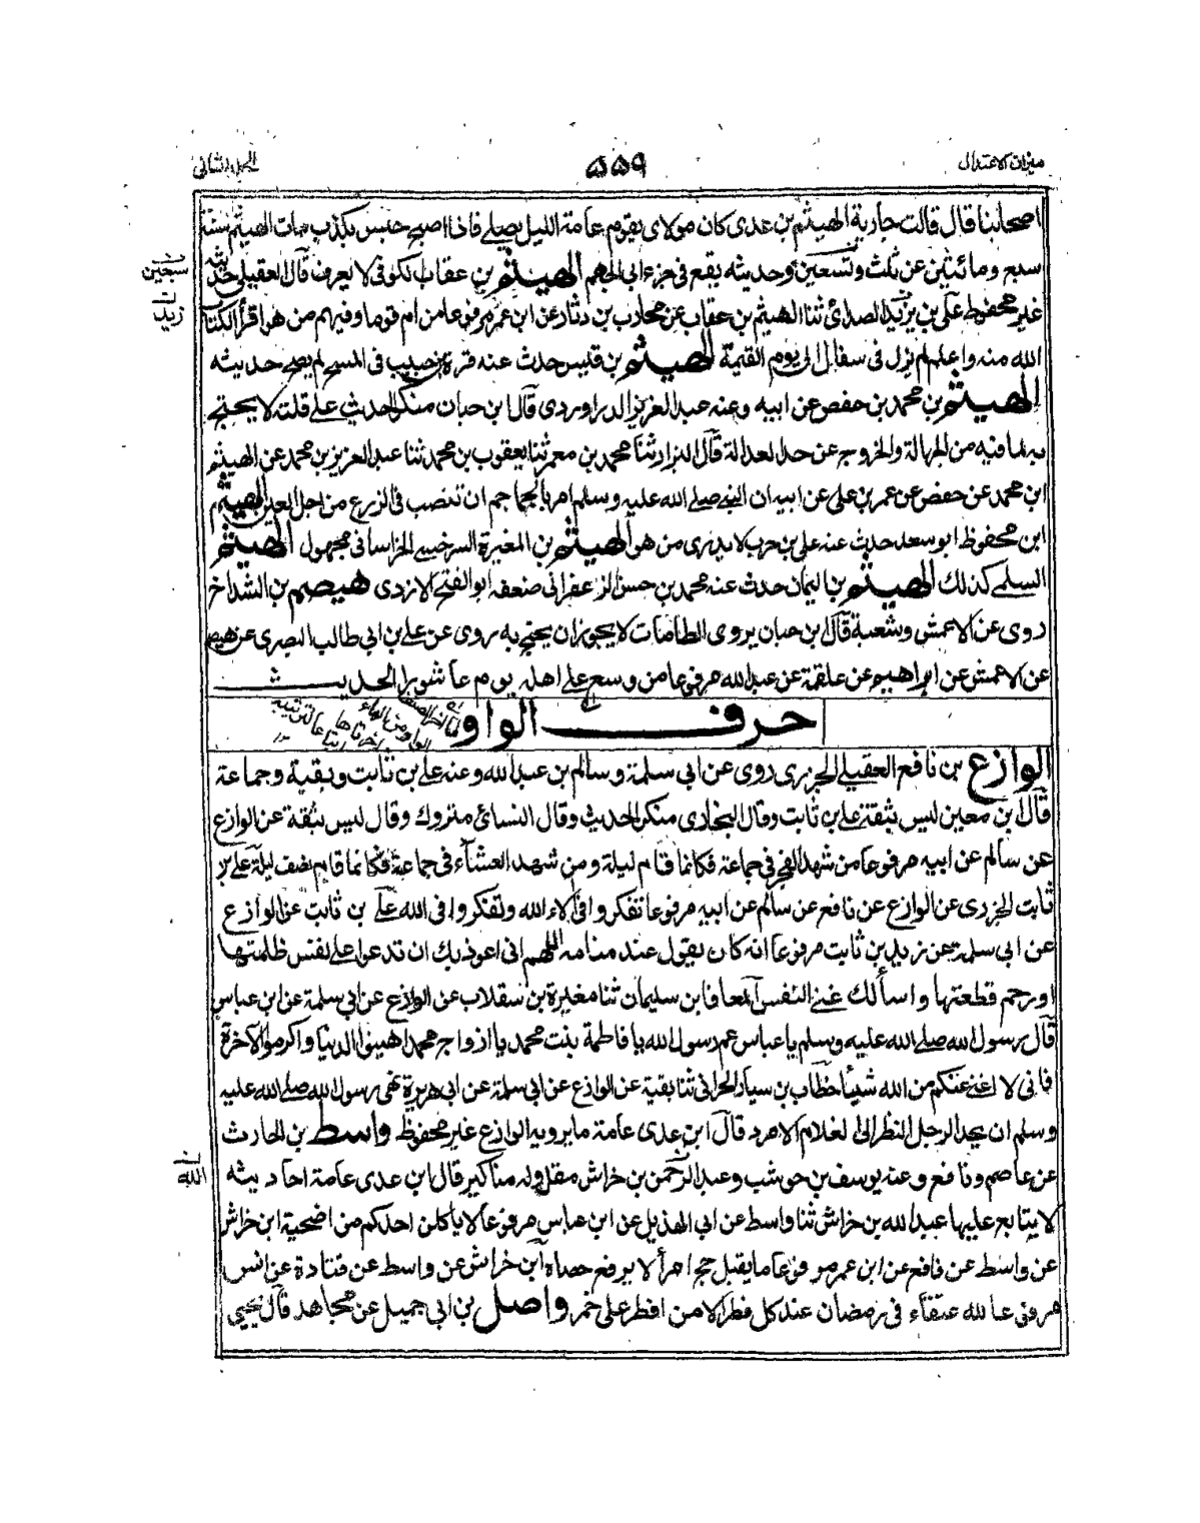 ميزان الاعتدال
۵۵۹
الجلد الثانى
اصحابنا قال قالت جارية الهيثم بن عدى كان مولاى يقوم عامة الليل يصلى فاذا اصبح جلس يكذب مات الهيثم سنة
سبع ومائتين عن ثلث وتسعين وحديثه يقع فى جزء ابى الجهم الهيثم بن عقاب لكوفى لا يعرف قال العقيلى حديثه
سبعين
غير محفوظ على بن يزيد الصدائى ثنا الهيثم بن عقاب عن محارب بن دثار عن ابن عمر مرفوعا من ام قوما وفيهم من هو اقرأ لكتاب
زيد
الله منه واعلم لم يزل فى سفال الى يوم القيمة الهيثم بن قيس حدث عنه قرة بن حبيب فى المسح لم يصح حديثه
الهيثم بن محمد بن حفص عن ابيه وعنه عبد العزيز الدراوردى قال ابن حبان منكر الحديث على قلته لا يحتج
به لما فيه من الجهالة والخروج عن حد العدالة قال البزار ثنا محمد بن معمر ثنا يعقوب بن محمد ثنا عبد العزيز بن محمد عن الهيثم
ابن محمد عن حفص عن عمر بن على عن ابيه ان النبى صلى الله عليه وسلم امر بالجماجم ان تنصب فى الزرع من اجل العين الهيثم
ابن محفوظ ابو سعد حدث عنه على بن حرب لا يدرى من هو الهيثم بن المغيرة السرخسى الخراسانى مجهول الهيثم
السلمى كذلك الهيثم بن اليمان حدث عنه محمد بن حسن الزعفرانى ضعفه ابو الفتح الازدى هيصم بن الشداخ
روى عن الاعمش وشعبة قال ابن حبان يروى الطامات لا يجوز ان يحتج به روى عن على بن ابى طالب البصرى عن هيصم
عن الاعمش عن ابراهيم عن علقمة عن عبد الله مرفوعا من وسع على اهله يوم عاشورا الحديث
حرف الواو
الوازع بن نافع العقيلى الجزرى روى عن ابى سلمة وسالم بن عبد الله وعنه على بن ثابت وبقية وجماعة
قال ابن معين ليس بثقة على بن ثابت وقال البخارى منكر الحديث وقال النسائى متروك وقال ليس بثقة عن الوازع
عن سالم عن ابيه مرفوعا من شهد الفجر فى جماعة فكانما قام ليلة ومن شهد العشاء فى جماعة فكانما قام نصف ليلة على بن
ثابت الجزرى عن الوازع عن نافع عن سالم عن ابيه مرفوعا تفكروا فى آلاء الله ولا تفكروا فى الله على بن ثابت عن الوازع
عن ابى سلمة عن زيد بن ثابت مرفوعا انه كان يقول عند منامه اللهم انى اعوذ بك ان تدعوا على نفس ظلمتها
او رحم قطعتها واسألك غنى النفس المعافا بن سليمان ثنا مغيرة بن سقلاب عن الوازع عن ابى سلمة عن ابن عباس
قال رسول الله صلى الله عليه وسلم يا عباس عم رسول الله يا فاطمة بنت محمد يا ازواج محمد اهينوا الدنيا واكرموا الآخرة
فانى لا اغنى عنكم من الله شيئا خطاب بن سيار الحرانى ثنا بقية عن الوازع عن ابى سلمة عن ابى هريرة نهى رسول الله صلى الله عليه
وسلم ان يحد الرجل النظر الى الغلام الامرد قال ابن عدى عامة ما يرويه الوازع غير محفوظ واسط بن الحارث
عن عاصم ونافع وعنه يوسف بن حوشب وعبد الرحمن بن خراش مقل وله مناكير قال ابن عدى عامة احاديثه
الله
لا يتابع عليها عبد الله بن خراش ثنا واسط عن ابى الهذيل عن ابن عباس مرفوعا لا ياكلن احدكم من اضحية ابن خراش
عن واسط عن نافع عن ابن عمر مرفوعا ما يقبل حج امرأ لا يرفع حصاه ابن خراش عن واسط عن قتادة عن انس
مرفوعا لله عتقاء فى رمضان عند كل فطر الا من افطر على خمر واصل بن ابى جميل عن مجاهد قال يحيى